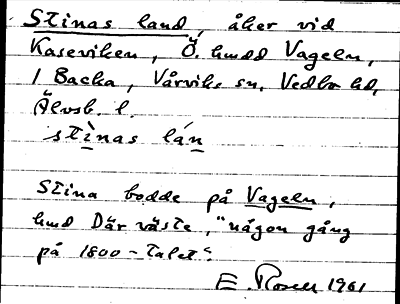 Stinas land, åker vid
Kaseviken, Ö. hmdd Vageln,
1 Backa, Vårviks sn. Vedbo hd,
Älvsb. l.
stìnas lán
Stina bodde på Vageln,
hmd Där väste, "någon gång
på 1800-talet".
E. 1961